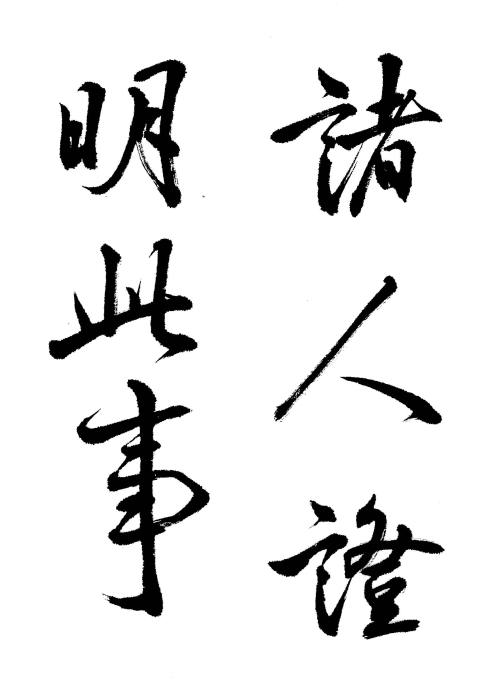 諸人證
明此事